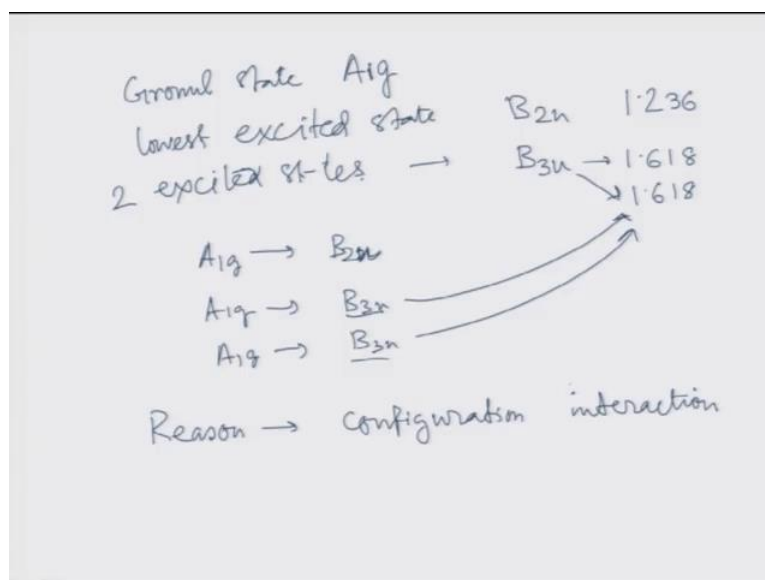 Ground state A1g
lowest excited state B2u 1.236
2 excited states → B3u → 1.618
1.618
A1g → B2u
A1g → B3u
A1g → B3u
Reason → configuration interaction